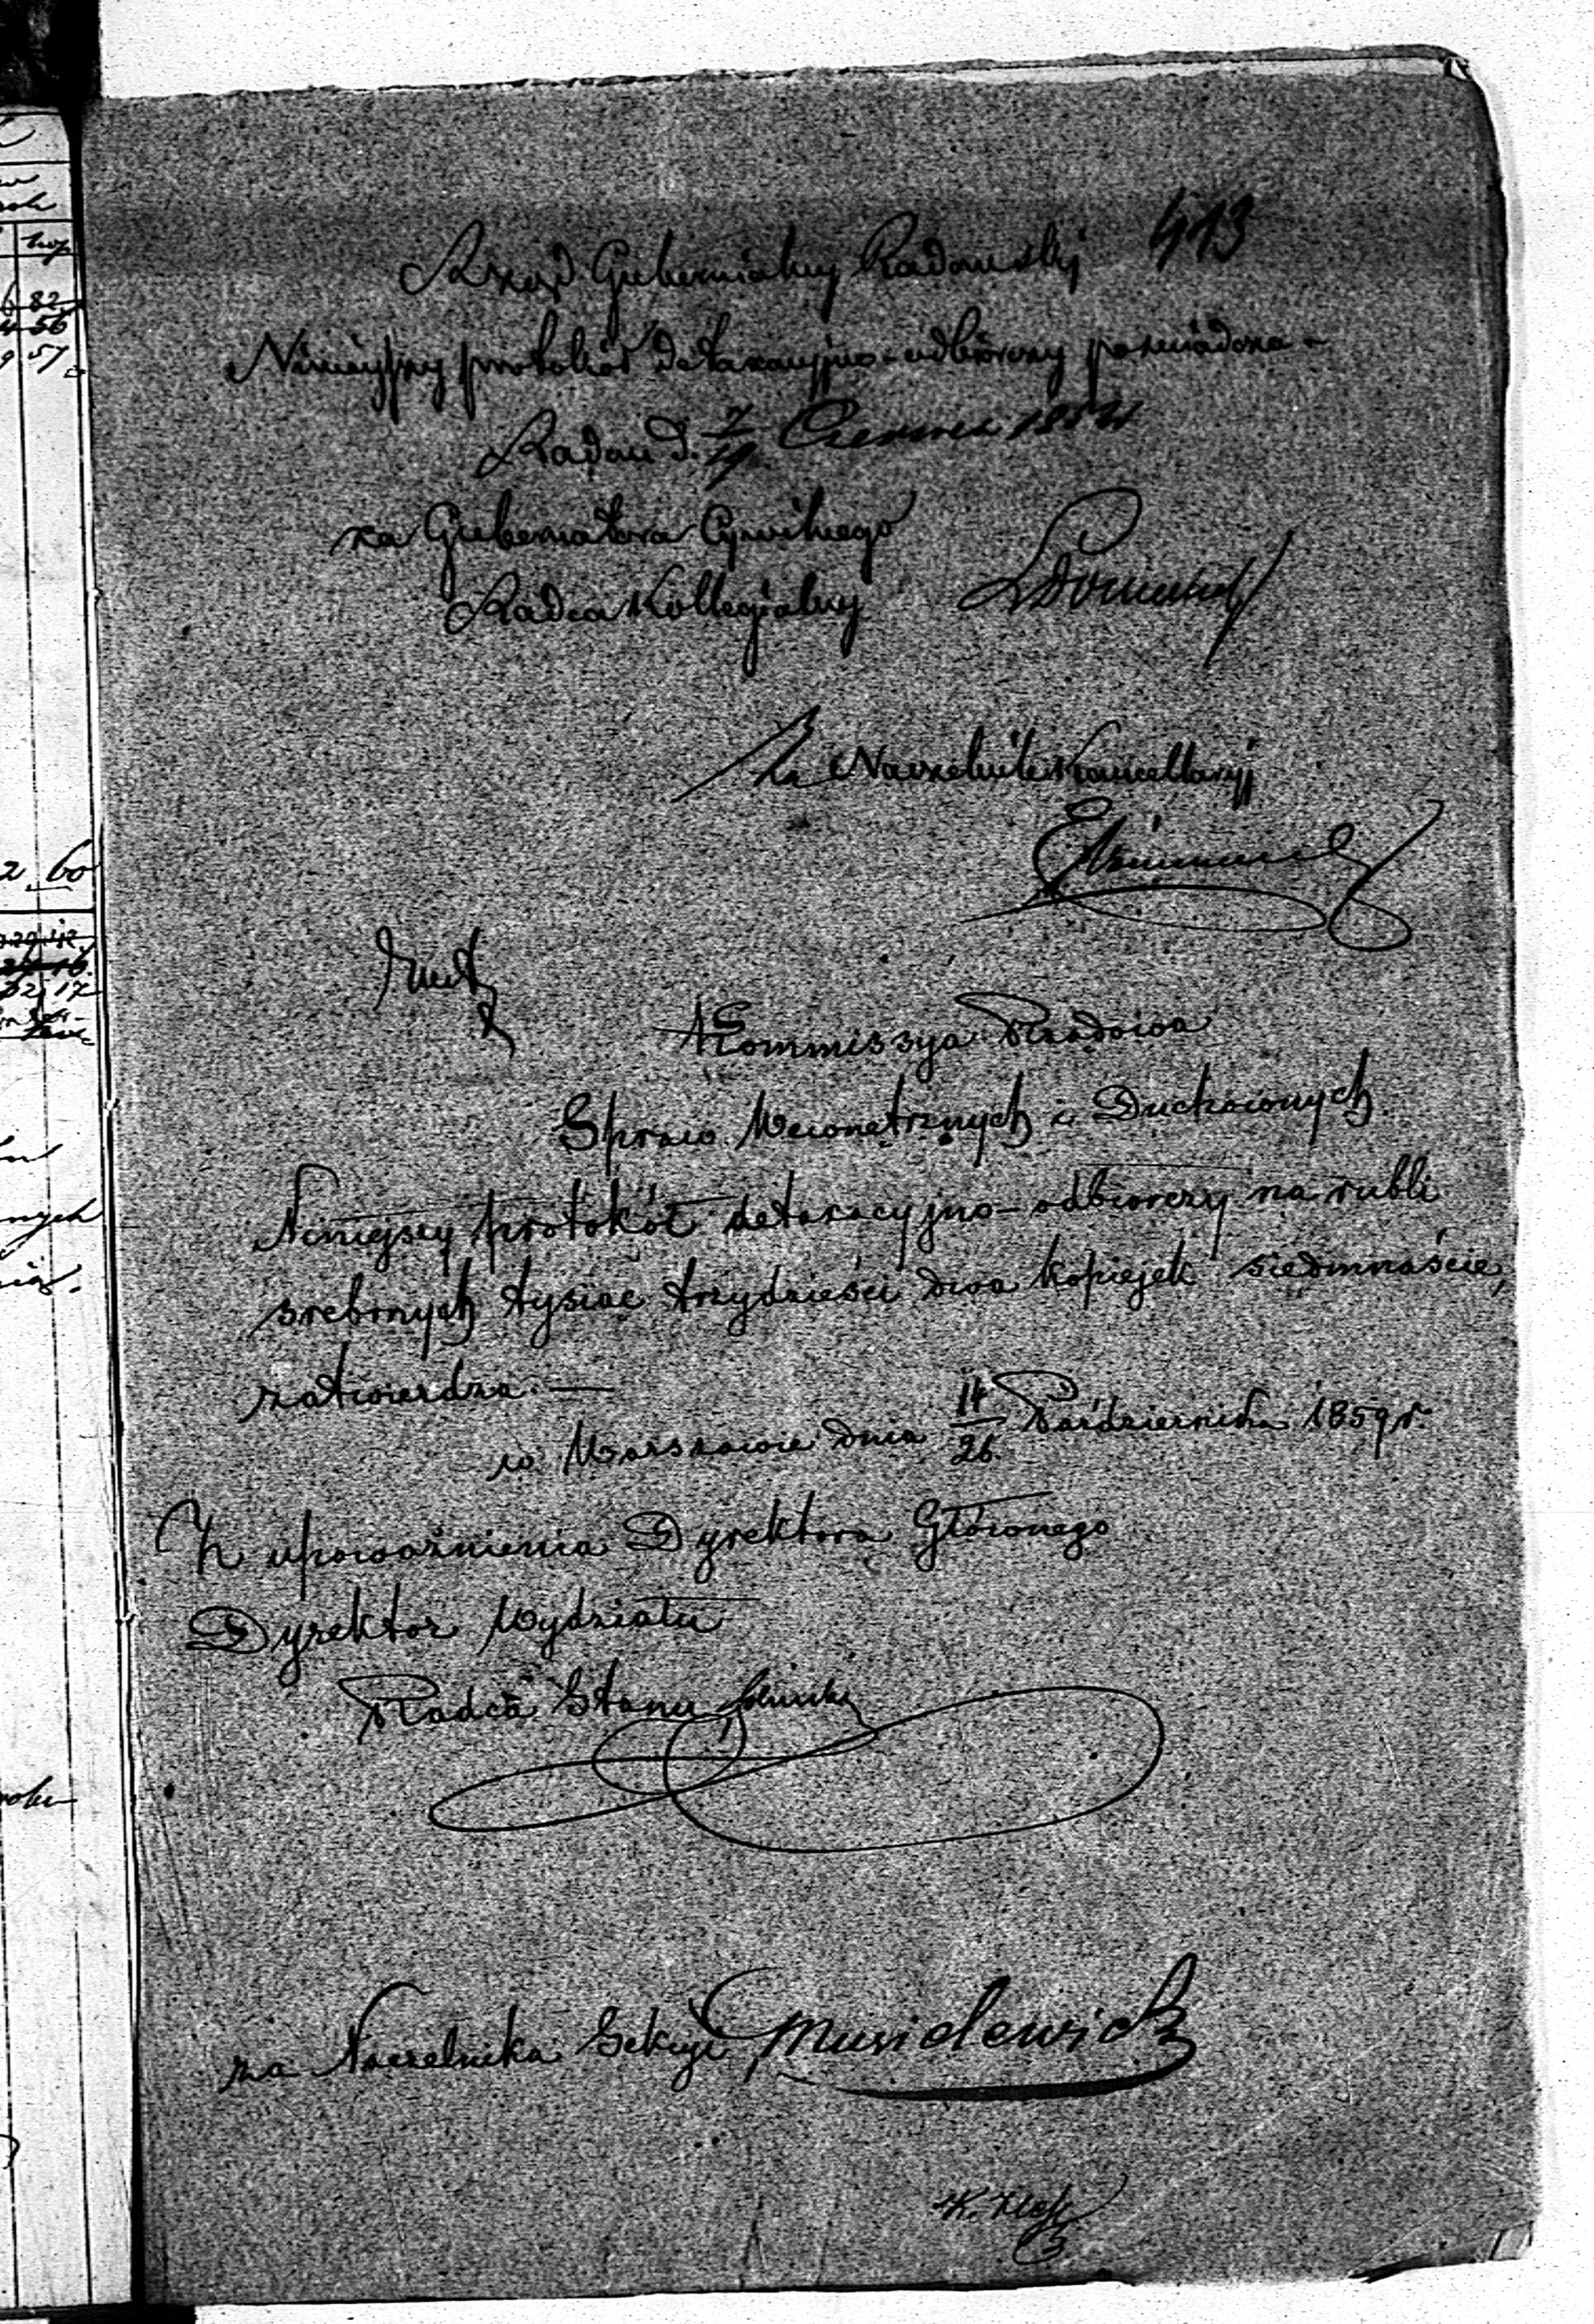 413
Rząd Gubernialny Radomski
Niniejszy protokół detaxacyjno-odbiorczy poświadcza
Radom d. 7/19 Czerwca
za Gubernatora Cywilnego
Radca Kollegialny
Za Naczelnika Kancellaryj
Kommissya Rządowa
Spraw Wewnętrznych i Duchownych
Niniejszy protokół detaxacyjno-odbiorczy na rubli
srebrnych tysiąc trzydzieści dwa kopiejek siedmnaście,
zatwierdza. —
w Warszawie dnia 14/26 Października 1859 r.
Z upoważnienia Dyrektora Głównego
Dyrektor Wydziału
Radca Stanu
za Naczelnika Sekcyi
82
56
57
2 60
17